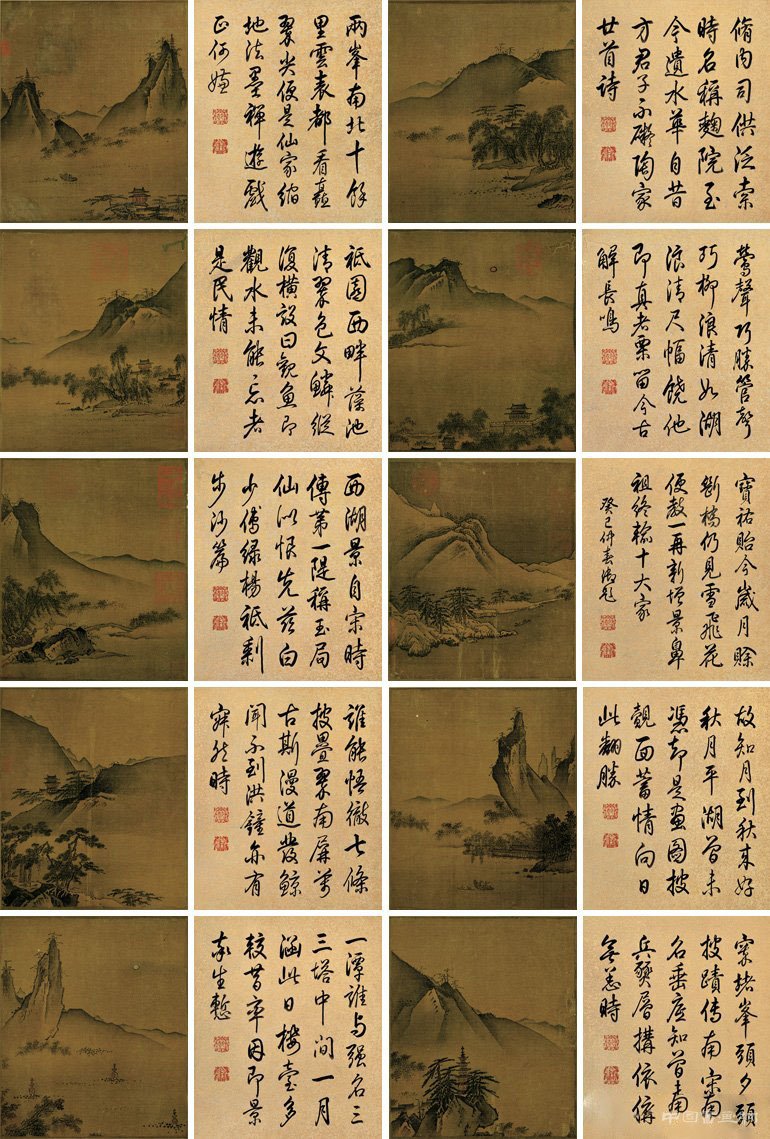 兩峯南北十餘
里雲表都看矗
翠尖便是仙家縮
地法墨禪遊戲
正何嫌
脩內司供泛索
時名稱麯院至
今遺水華自昔
方君子不礙陶家
廿首詩
祇園西畔藻池
清翠色文鱗縱
復橫設曰觀魚即
觀水未能忘者
是民情
鶯聲巧勝管聲
巧柳浪清如湖
浪清尺幅饒他
即真者栗留今古
解長鳴
西湖景自宋時
傳第一隄稱玉局
仙似恨先茲白
少傅綠楊祇剩
步沙篇
寶祐貽今歲月賒
斷橋仍見雪飛花
便教一再新增景鼻
祖終輸十大家
癸巳仲春御題
誰能悟徹七條
披疊翠南屏萬
古斯漫道發鯨
聞不到洪鐘亦有
寂然時
故知月到秋來好
秋月平湖曾未
憑却是畫圖披
覿面蓄情向日
此翻勝
一潭誰与強名三
三塔中間一月
涵此日樓臺多
較昔率因即景
永生慙
窣堵峯頭夕
披蹟傳南宋
名垂底知曾
兵燹層構依俙
無恙時